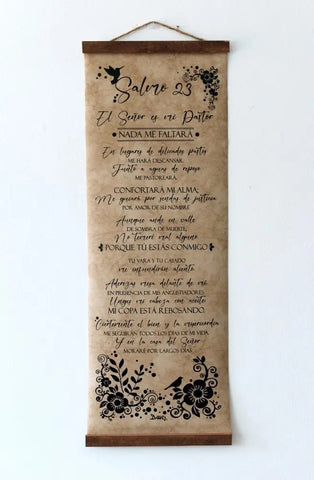 Salmo 23
El Señor es mi Pastor
NADA ME FALTARÁ
En lugares de delicados pastos
ME HARÁ DESCANSAR.
Junto a aguas de reposo
ME PASTOREARÁ.
CONFORTARÁ MI ALMA;
Me guiará por sendas de justicia
POR AMOR DE SU NOMBRE
Aunque ande en valle
DE SOMBRA DE MUERTE,
No temeré mal alguno
PORQUE TÚ ESTÁS CONMIGO
TU VARA Y TU CAYADO
me infundirán aliento
Aderezas mesa delante de mí
EN PRESENCIA DE MIS ANGUSTIADORES
Unges mi cabeza con aceite
MI COPA ESTÁ REBOSANDO.
Ciertamente el bien y la misericordia
ME SEGUIRÁN TODOS LOS DÍAS DE MI VIDA,
Y en la casa del Señor
MORARÉ POR LARGOS DÍAS